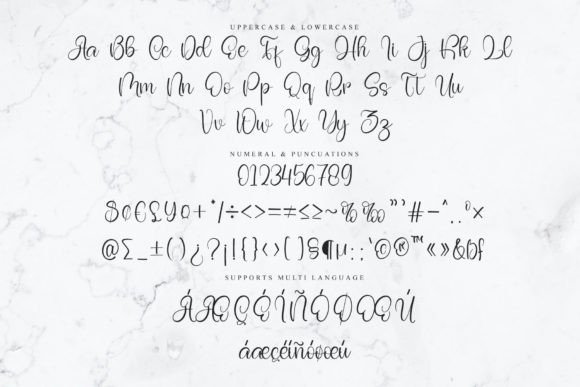 UPPERCASE & LOWERCASE
Aa Bb Cc Dd Ee Ff Gg Hh Ii Jj Kk Ll
Mm Nn Oo Pp Qq Rr Ss Tt Uu
Vv Ww Xx Yy Zz
NUMERAL & PUNCUATIONS
0123456789
$¢€£¥¤+*/÷<>=≠≤≥~%‰”’#-^.,º×
@∑_±()¿?¡!{}‹›[]§¶µ:;‘©®™«»&
SUPPORTS MULTI LANGUAGE
ÁÆÇÉÍÑÓØŒÚ
áæçéíñóøœú